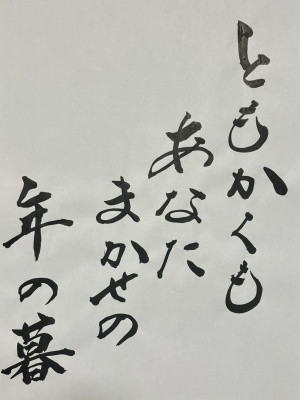 ともかくも
あなた
まかせの
年の暮